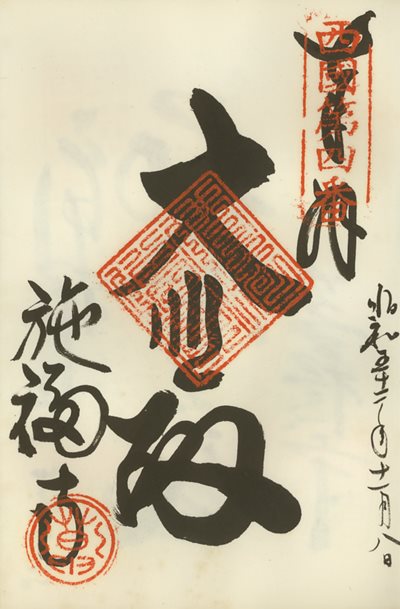 西國第四番
奉拝
昭和五十二年十一月八日
大悲殿
施福寺